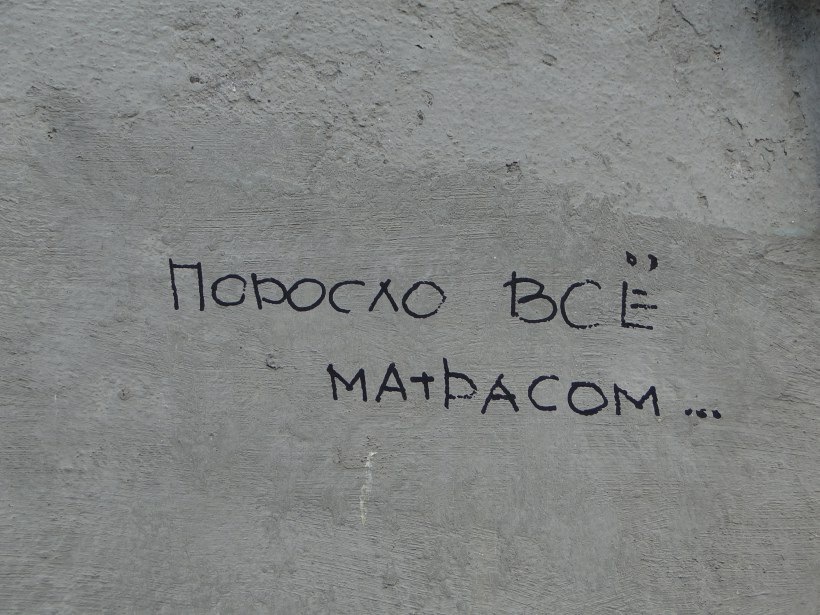 ПОРОСЛО ВСЁ
МАТРАСОМ...